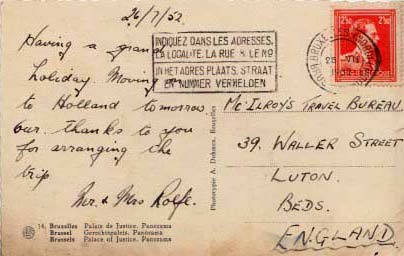 26/7/52
Having a grand
holiday. Moving on
to Holland tomorrow
our thanks to you
for arranging the
trip
Mr. & Mrs Rolfe.
INDIQUEZ DANS LES ADRESSES,
LA LOCALITE, LA RUE & LE NO
IN HET ADRES PLAATS, STRAAT
EN NUMMER VERMELDEN
2F50
2F50
McIlroy's Travel Bureau
39, WALLER STREET
LUTON.
BEDS.
ENGLAND
Phototypie A. Dohmen, Bruxelles
14. Bruxelles Palais de Justice. Panorama
Brussel Gerechtspaleis. Panorama
Brussels Palace of Justice. Panorama